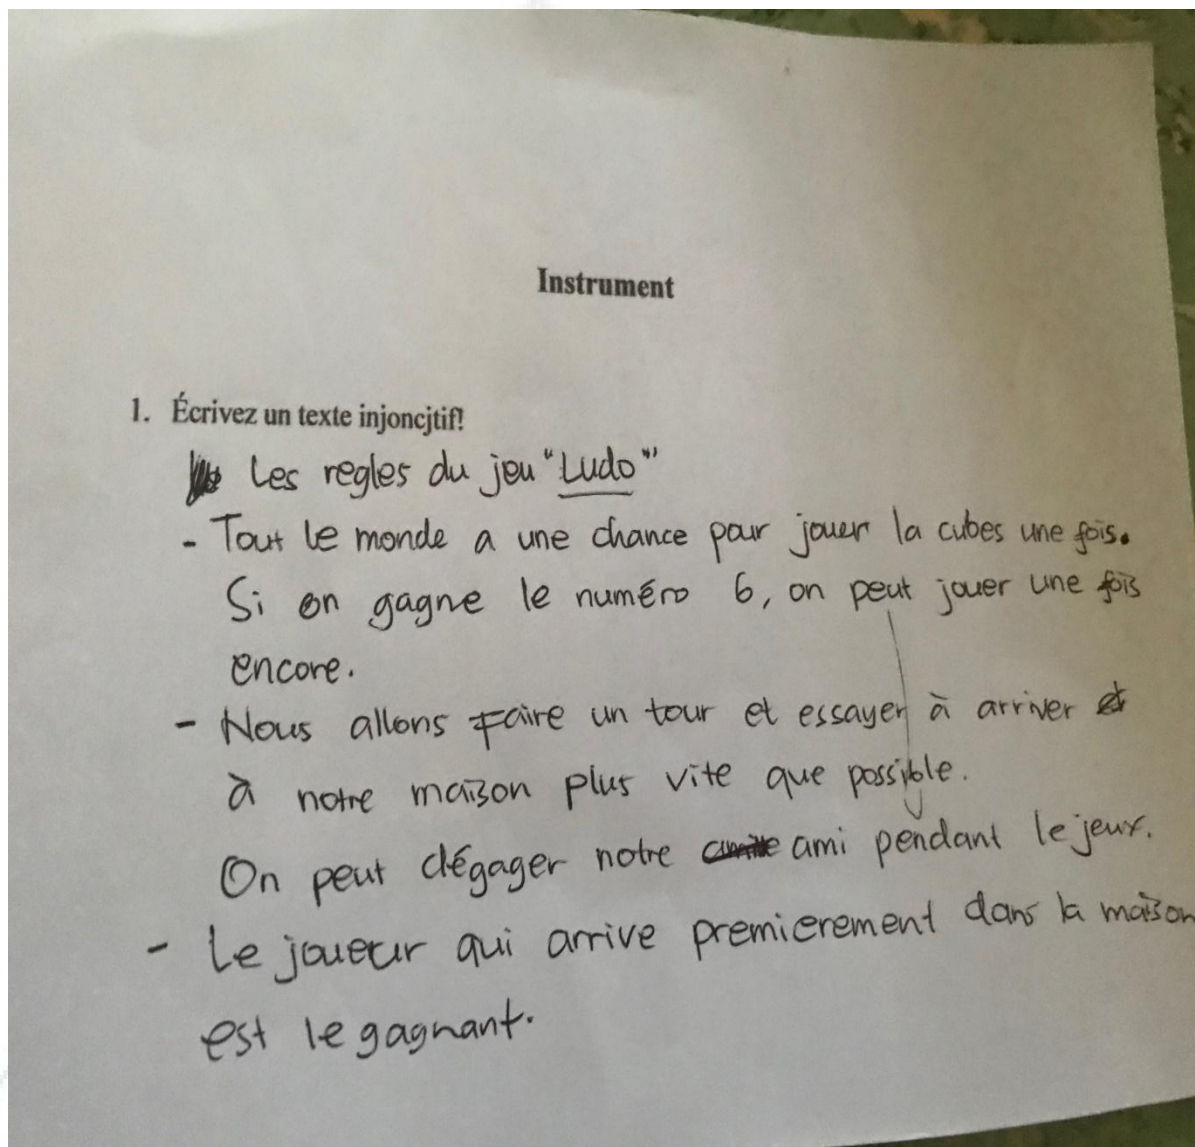 Instrument
1. Écrivez un texte injoncjtif!
Les regles du jeu "Ludo"
- Tout le monde a une chance pour jouer la cubes une fois.
Si on gagne le numéro 6, on peut jouer une fois
encore.
- Nous allons faire un tour et essayer à arriver
à notre maison plus vite que possible.
On peut dégager notre ami pendant le jeux.
- Le joueur qui arrive premierement dans la maison
est le gagnant.